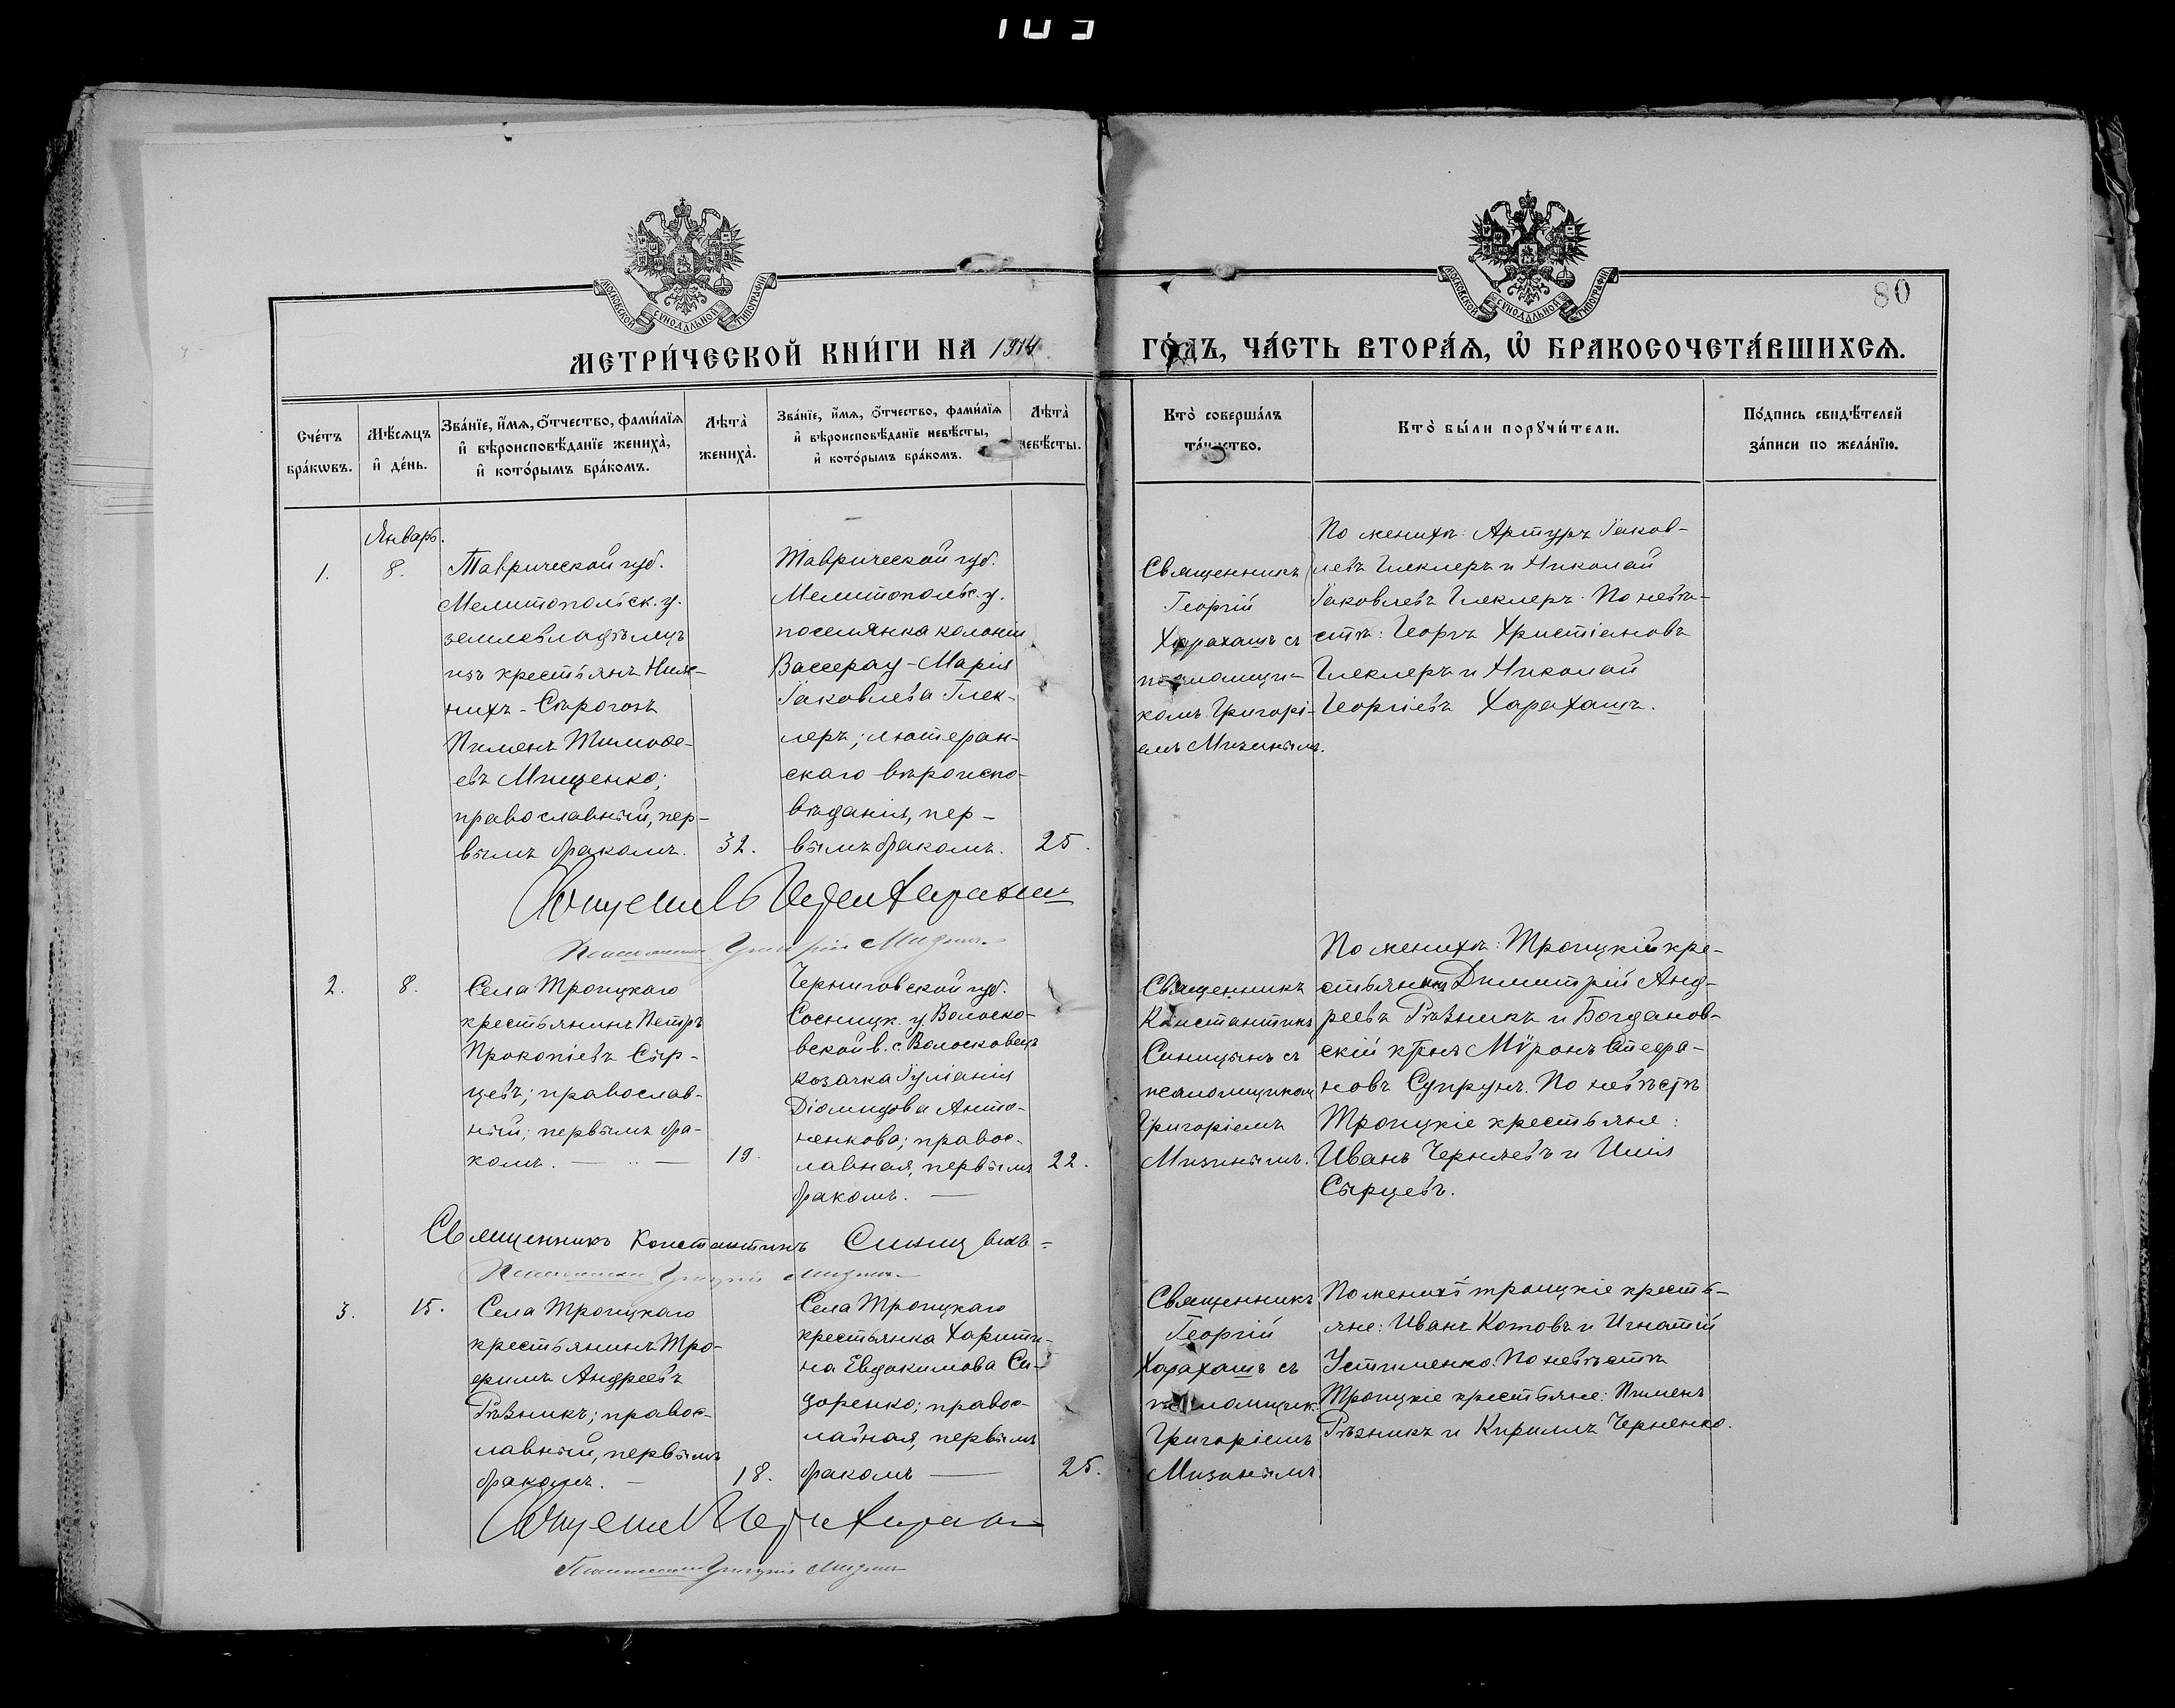 103
МОСКОВСКОЙ СѴНОДАЛЬНОЙ ТИПОГРАФІИ
МОСКОВСКОЙ СѴНОДАЛЬНОЙ ТИПОГРАФІИ
80
МЕТРИ́ЧЕСКОЙ КНИ́ГИ НА 1914 ГО́ДЪ, ЧА́СТЬ ВТОРА́Ѧ, Ѡ҆ БРАКОСОЧЕТА́ВШИХСѦ.
Сче́тъ
бра́кѡвъ.
Мѣ́сяцъ
и҆ де́нь.
Зва́нїе, и҆́мѧ, ѻ҆́тчество, фами́лїѧ
и҆ вѣроисповѣ́данїе жениха̀,
и҆ кото́рымъ бра́комъ.
Лѣта̀
жениха̀.
Зва́нїе, и҆́мѧ, ѻ҆́тчество, фами́лїѧ
и҆ вѣроисповѣ́данїе невѣ́сты,
и҆ кото́рымъ бра́комъ.
Лѣта̀
невѣ́сты.
Кто̀ соверша́лъ
та́инство.
Кто̀ бы́ли порꙋчи́тели.
По́дпись свидѣ́телей
за́писи по жела́нїю.
Январь.
1.
8.
Таврической губ.
Мелитопольск. у.
землевладѣлецъ
изъ крестьянъ Ниж-
нихъ-Сѣрогозъ
Пименъ Тимофе-
евъ Мищенко;
православный, пер-
вымъ бракомъ.
32.
Таврической губ.
Мелитопольс. у.
поселянка колоніи
Вассерау-Марія
Іаковлева Глек-
леръ; лютеран-
скаго вѣроиспо-
вѣданія, пер-
вымъ бракомъ.
25.
Священникъ
Георгій
Харахашъ съ
псаломщи-
комъ Григорі-
емъ Мизинымъ.
По женихѣ: Артуръ Іаков-
левъ Глеклеръ и Николай
Іаковлевъ Глеклеръ. По невѣ-
стѣ: Георгъ Христіановъ
Глеклеръ и Николай
Георгіевъ Харахашъ.
Священникъ Георгій Харахашъ
Псаломщикъ Григорій Мизинъ
2.
8.
Села Троицкаго
крестьянинъ Петръ
Прокопіевъ Сыр-
цевъ; православ-
ный; первымъ бра-
комъ.
19.
Черниговской губ.
Сосницк. у. Волоско-
вской в. с. Волосковецъ
козачка Іуліанія
Діомидова Анто-
ненкова; правос-
лавная, первымъ
бракомъ.
22.
Священникъ
Константинъ
Синицынъ съ
псаломщикомъ
Григоріемъ
Мизинымъ.
По женихѣ: Троицкій кре-
стьянинъ Димитрій Анд-
реевъ Рѣзникъ и Богданов-
скій кр-нъ Мѵронъ Стефа-
новъ Супрунъ. По невѣстѣ
Троицкіе крестьяне:
Иванъ Черняевъ и Илія
Сырцевъ.
Священникъ Константинъ Синицынъ
Псаломщикъ Григорій Мизинъ
3.
15.
Села Троицкаго
крестьянинъ Тро-
фимъ Андреевъ
Рѣзникъ; правос-
лавный, первымъ
бракомъ.
18.
Села Троицкаго
крестьянка Харити-
на Евдокимова Си-
доренко; правос-
лавная, первымъ
бракомъ
25.
Священникъ
Георгій
Харахашъ съ
псаломщик.
Григоріемъ
Мизинымъ.
По женихѣ троицкіе кресть-
яне: Иванъ Котовъ и Игнатій
Устименко. По невѣстѣ
Троицкіе крестьяне: Пименъ
Рѣзникъ и Кириллъ Черненко.
Священникъ Георгій Харахашъ
Псаломщикъ Григорій Мизинъ